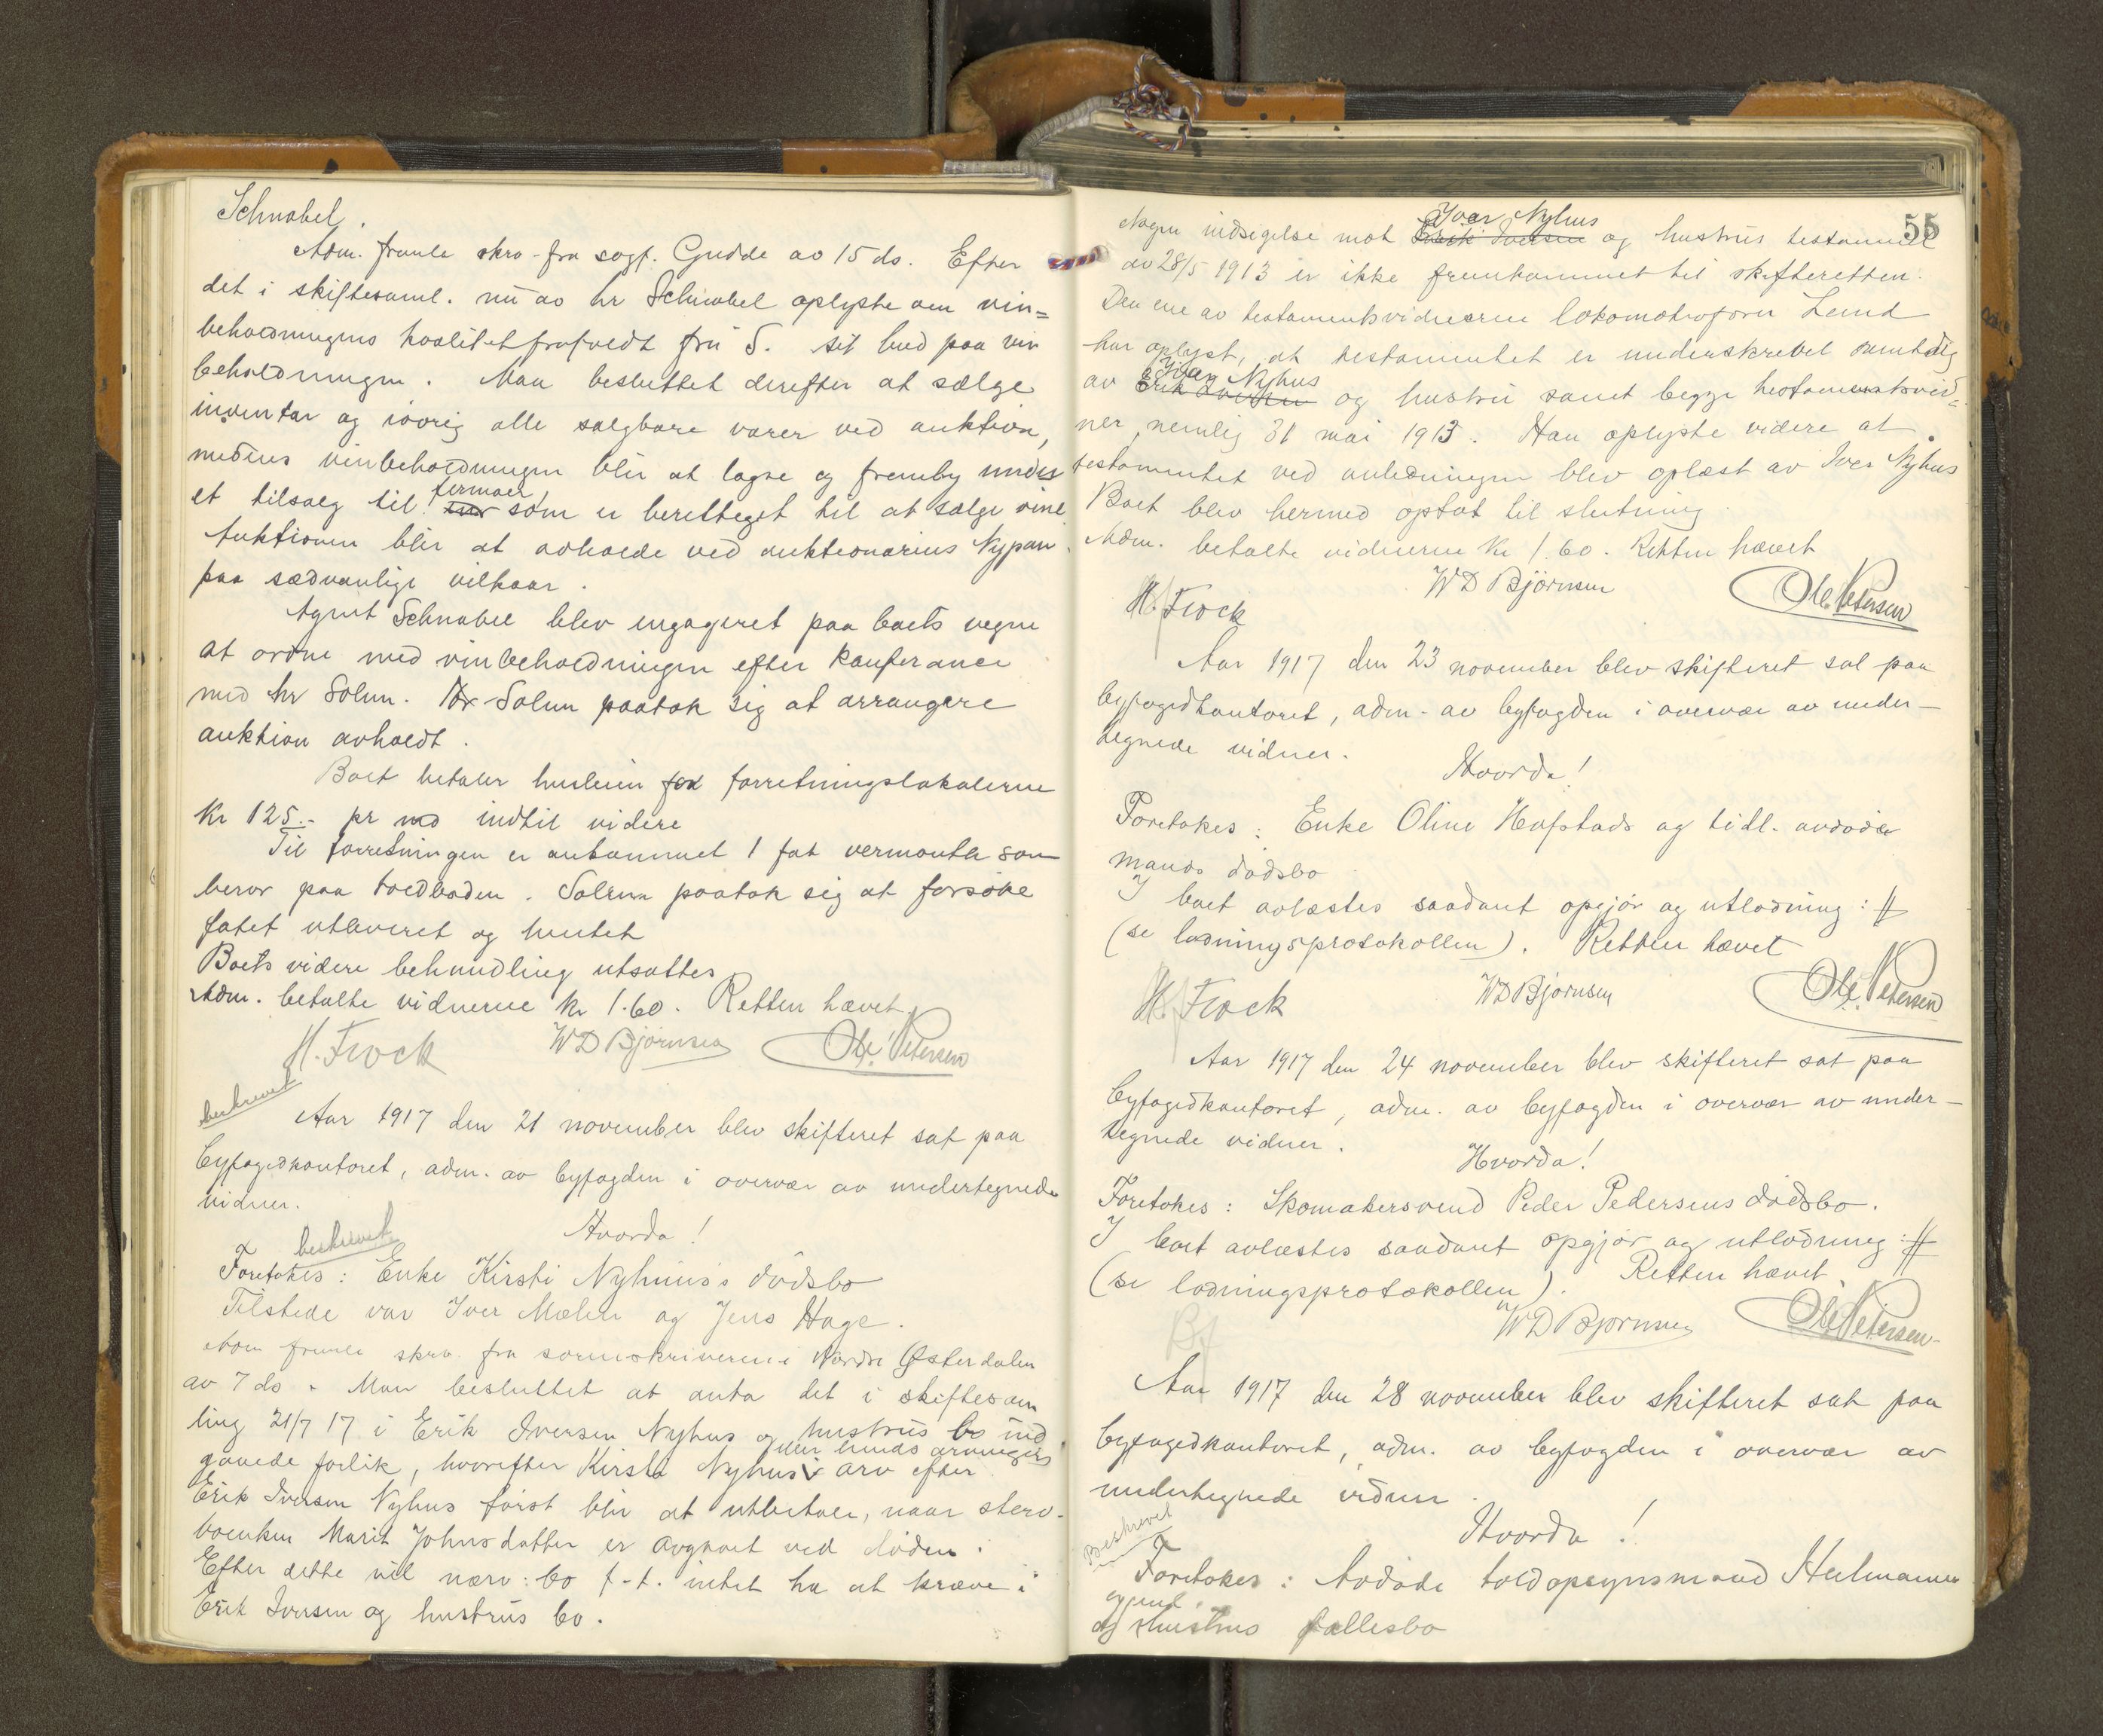 Schnabel.
Adm. fremla skro- fra sagf. Gudde av 15 ds. Efter
det i skiftesaml. nu av hr Schnabel oplyste om vin=
beholdningens kvalitet frafaldt fru S. sit bud paa vin
beholdningen. Man besluttet derefter at sælge
inventar og iøvrig alle salgbare varer ved auktion,
medens vinbeholdningen blir at lagre og fremby under
et tilsalg til firmaer, som er berettiget til at sælge vine
Auktionen blir at avholde ved auktionarius Nypan
paa sædvanlige vilkaar.
Agent Schnabel blev engageret paa boets vegne
at ordne med vinbeholdningen efter konferance
med hr Solem. Hr Solem paatok sig at arrangere
auktion avholdt.
Boet betaler husleien for forretningslokalerne
Kr 125.- pr md indtil videre
Til forretningen er ankommet 1 fat vermouth som
beror paa toldboden. Solem paatok sig at forsøke
fatet utleveret og hentet
Boets videre behandling utsattes
Adm. betalte vidnerne kr 1.60. Retten hævet.
H. Frock WD Bjørnsen Ole Petersen
beskrevet
Aar 1917 den 21 november blev skifteret sat paa
byfogedkontoret, adm. av byfogden i overvær av undertegnede
vidner.
Hvorda!
beskrevet
Foretokes: Enke Kirsti Nyhuus's dødsbo
Tilstede var Iver Mælen og Jens Hage.
Adm fremla skro fra sorenskriveren i Nordre Østerdalen
av 7 ds. Man besluttet at anta det i skiftesam
ling 21/7 17 i Erik Iversen Nyhus og hustrus bo ind
eller hendes arvingers
gaaede forlik, hvorefter Kirsti Nyhus's arv efter
Erik Iversen Nyhus først blir at utbetale, naar sterv-
boenken Marit Johnsdatter er avgaaet ved døden.
Efter dette vil nærv: bo f-t. intet ha at kræve i
Erik Iversen og hustrus bo.
55
Iver Nyhus
Nogen indsigelse mot Erik Iversen og hustrus testament
av 28/5 1913 er ikke fremkommet til skifteretten.
Den ene av testamentsvidnerne lokomotivfører Lund
har oplyst, at testamentet er underskrevet samtidig
Iver Nyhus
av Erik Iversen og hustru samt begge testamentsvid=
ner, nemlig 31 mai 1913. Han oplyste videre at
testamentet ved anledningen blev oplæst av Iver Nyhus
Boet blev hermed optat til slutning.
Adm. betalte vidnerne kr 1.60. Retten hævet
H. Frock WD Bjørnsen Ole Petersen
Aar 1917 den 23 november blev skifteret sat paa
byfogedkontoret, adm- av byfogden i overvær av under-
tegnede vidner.
Hvorda!
Foretokes: Enke Oline Hafstads og tidl. avdøde
mands dødsbo
I boet avlæstes saadant opgjør og utlodning: #
(se lodningsprotokollen). Retten hævet
H. Frock WD Bjørnsen Ole Petersen
Aar 1917 den 24 november blev skifteret sat paa
byfogedkontoret, adm. av byfogden i overvær av under-
tegnede vidner.
Hvorda!
Foretokes: Skomakersvend Peder Pedersens dødsbo.
I boet avlæstes saadant opgjør og utlodning: #
(se lodningsprotokollen). Retten hævet.
Bf WD Bjørnsen Ole Petersen
Aar 1917 den 28 november blev skifteret sat paa
byfogedkontoret, adm. av byfogden i overvær av
undertegnede vidner.
Hvorda!
Beskrevet
Foretokes: Avdøde toldopsynsmand Heilmanns
og hustrus fællesbo